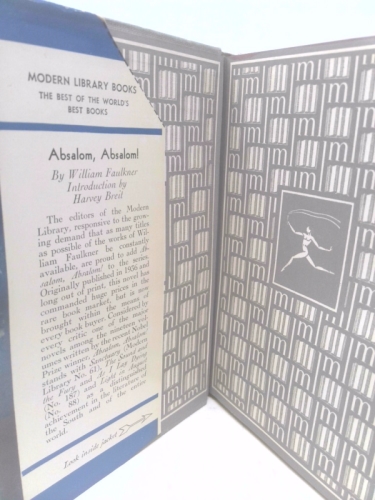 MODERN LIBRARY BOOKS
THE BEST OF THE WORLD'S
BEST BOOKS
Absalom, Absalom!
By William Faulkner
Introduction by
Harvey Breit
The editors of the Modern
Library, responsive to the grow-
ing demand that as many titles
as possible of the works of Wil-
liam Faulkner be constantly
available, are proud to add Ab-
salom, Absalom! to the series.
Originally published in 1936 and
long out of print, this novel has
commanded huge prices in the
rare book market, but is now
brought within the means of
every book buyer. Considered by
every critic one of the major
novels among the nineteen vol-
umes written by the recent Nobel
Prize winner, Absalom, Absalom!
stands with Sanctuary (Modern
Library No. 61), The Sound and
the Fury and As I Lay Dying
(No. 187) and Light in August
(No. 88) as a distinguished
achievement in the literature of
the South and of the entire
world.
Look inside jacket